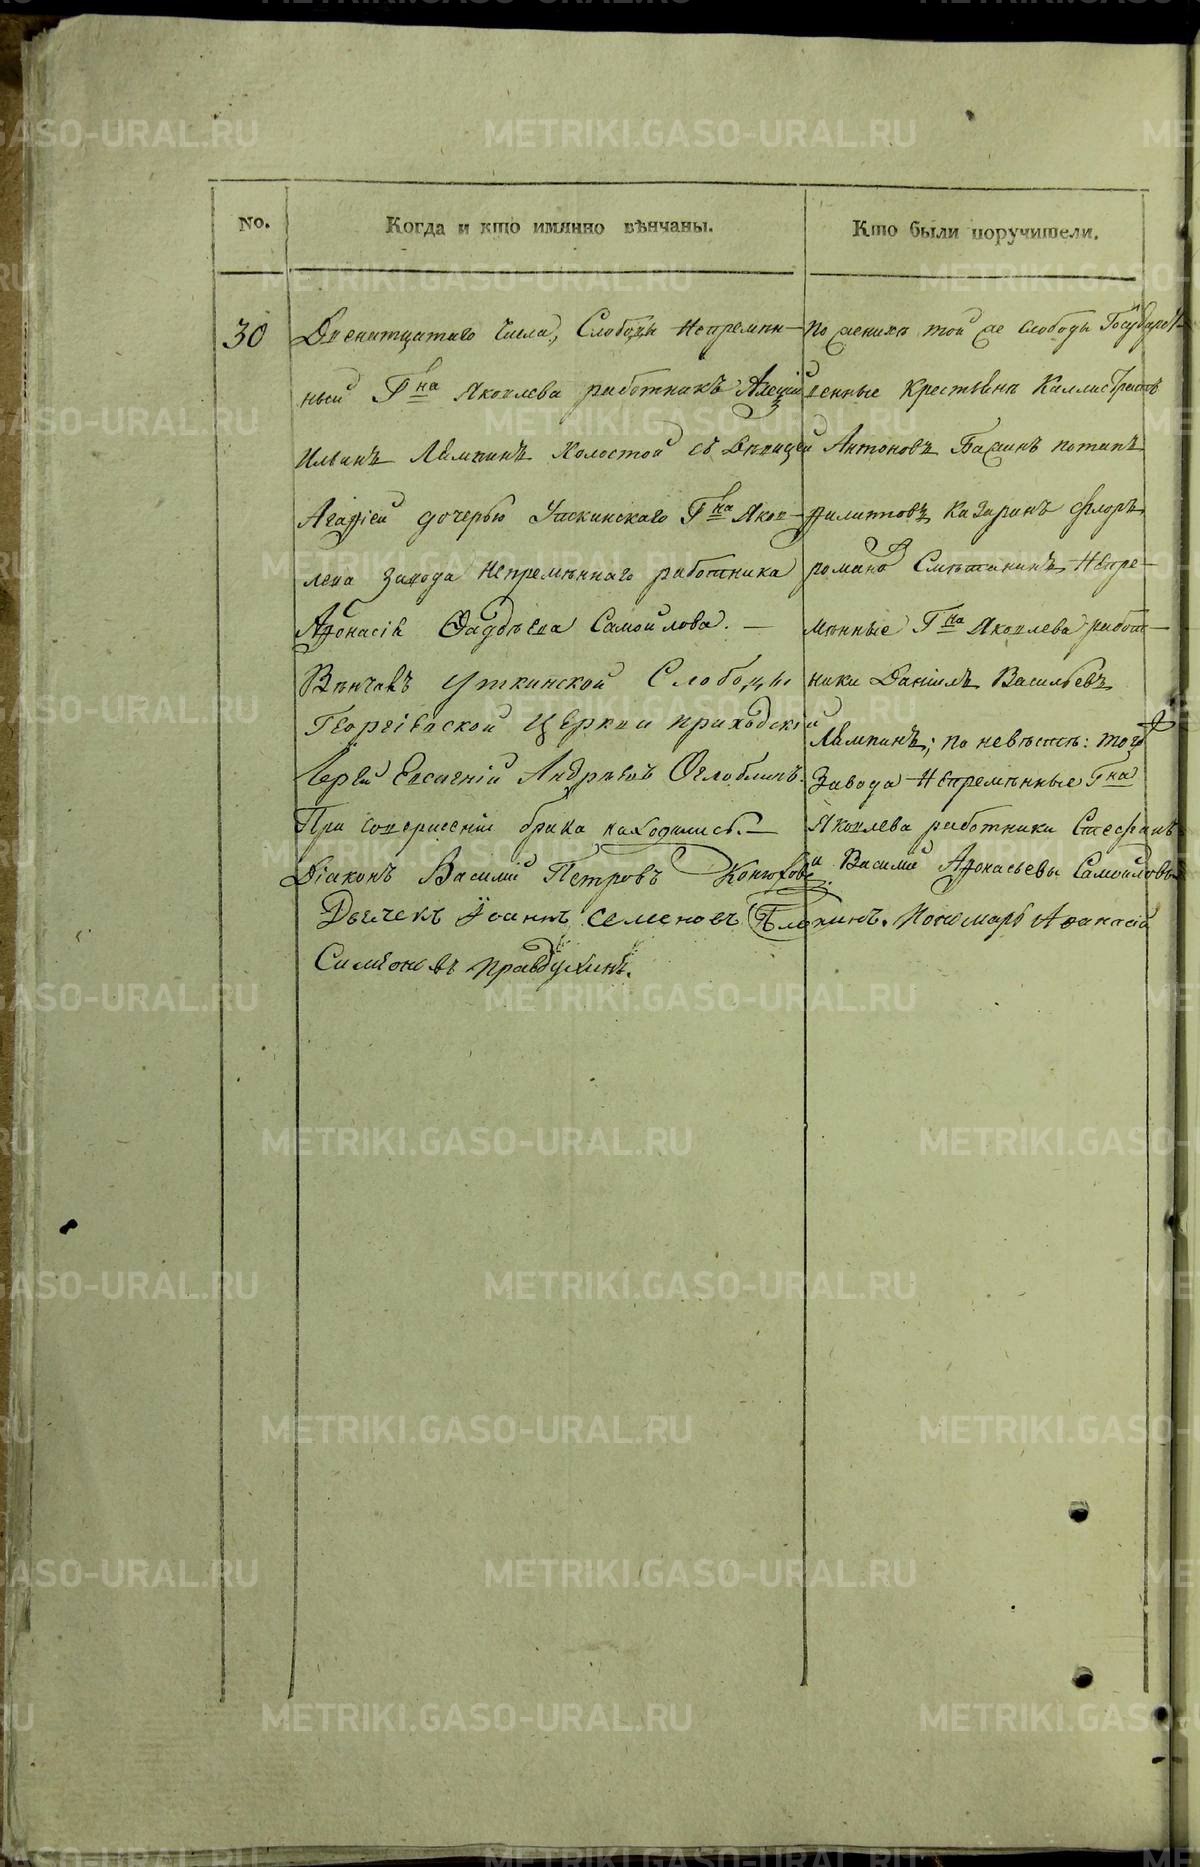 No.
Когда и кто имянно вѣнчаны.
Кто были поручители.
30
Слободы Непремѣн-
ный Гна Яковлева работникъ Алеѯій
Ильинъ Лямпинъ Холостой съ Дѣвицей
Агафіей дочерью Уткинскаго Гна Яков-
лева завода Непремѣннаго работника
Афонасія Фадѣева Самойлова. —
Вѣнчалъ Уткинской Слободы
Георгіевской Церкви приходскій
Іерей Евгеній Андрѣевъ Оглоблинъ.
При совершеніи брака находились. —
Діаконъ Василій Петровъ Конюховъ.
Дьячекъ Іоаннъ Семеновъ
Пономарь Аѳанасій
Симеоновъ Правдухинъ.
По женихѣ той же слободы Государст-
венные Крестьянъ Каллистратъ
Антоновъ Бажинъ потапъ
филиповъ Казаринъ Флоръ
романовъ Смѣтанинъ Непре-
мѣнные Гна Яковлева работ-
ники Даніилъ Васильевъ
Лямпинъ; по невѣстѣ: того
Завода Непремѣнные Гна
Яковлева работники Стефанъ
и Василій Афонасьевы Самойловы
METRIKI.GASO-URAL.RU